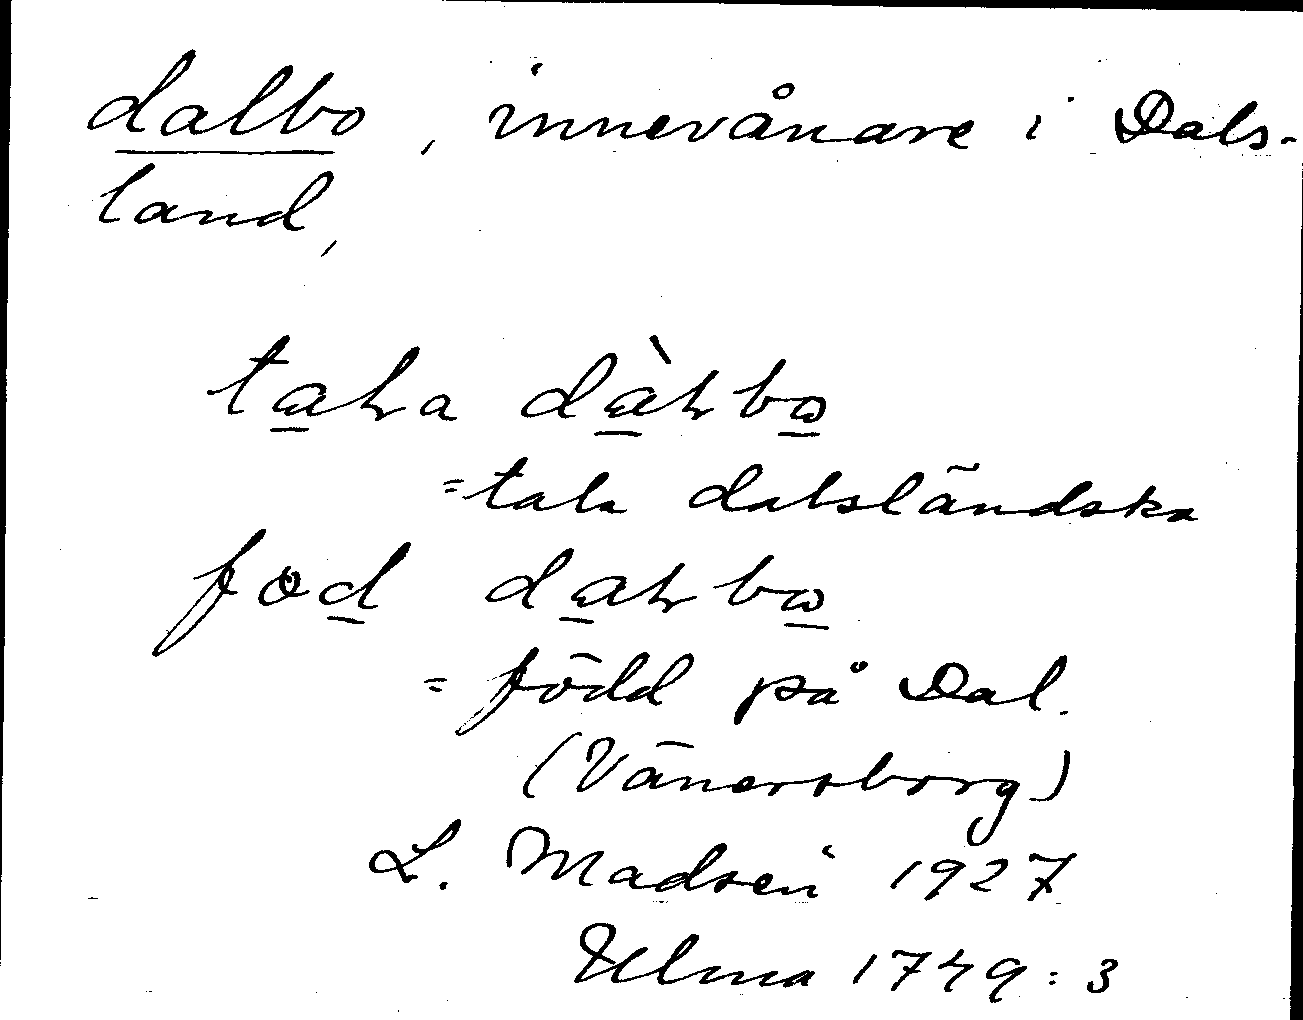 dalbo, innevånare i Dals-
land,
taɫa dàɫbo
=tala dalsländska
fod daɫbo
= född på Dal.
(Vänersborg)
L. Madsén 1927
Ulma 1749:3